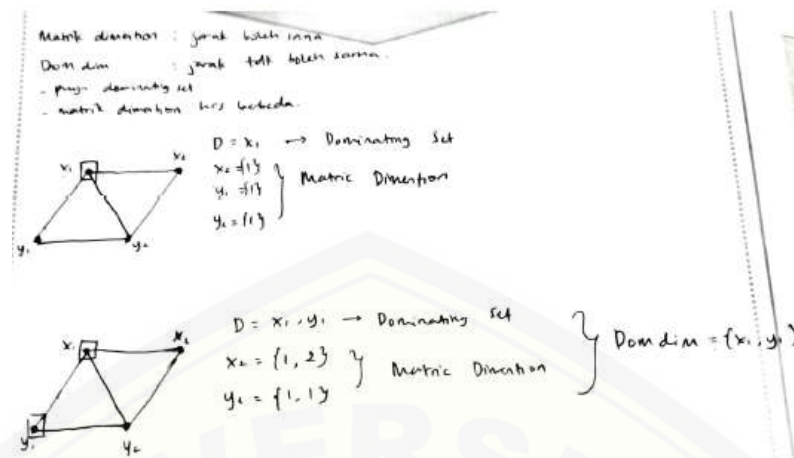 Matrik dimention : jarak boleh sama
Dom dim : jarak tdk boleh sama.
- punya dominating set
- matrik dimention hrs berbeda.
D = x₁ → Dominating Set
x₂ = {1}
y₁ = {1}
y₂ = {1}
Matric Dimention
x₁
x₂
y₁
y₂
D = x₁, y₁ → Dominating Set
x₂ = {1, 2}
y₂ = {1, 1}
Matric Dimention
Dom dim = {x₁, y₁}
x₁
x₂
y₁
y₂